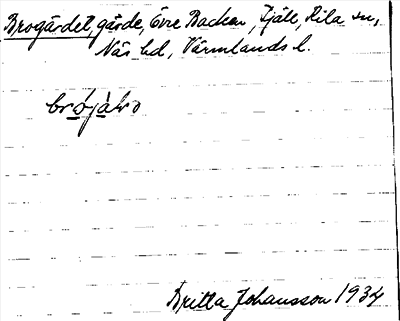 Brogärdet, gärde, Övre Backen, Fjäll, Kila sn,
Näs hd, Värmlands l.
Britta Johansson 1934